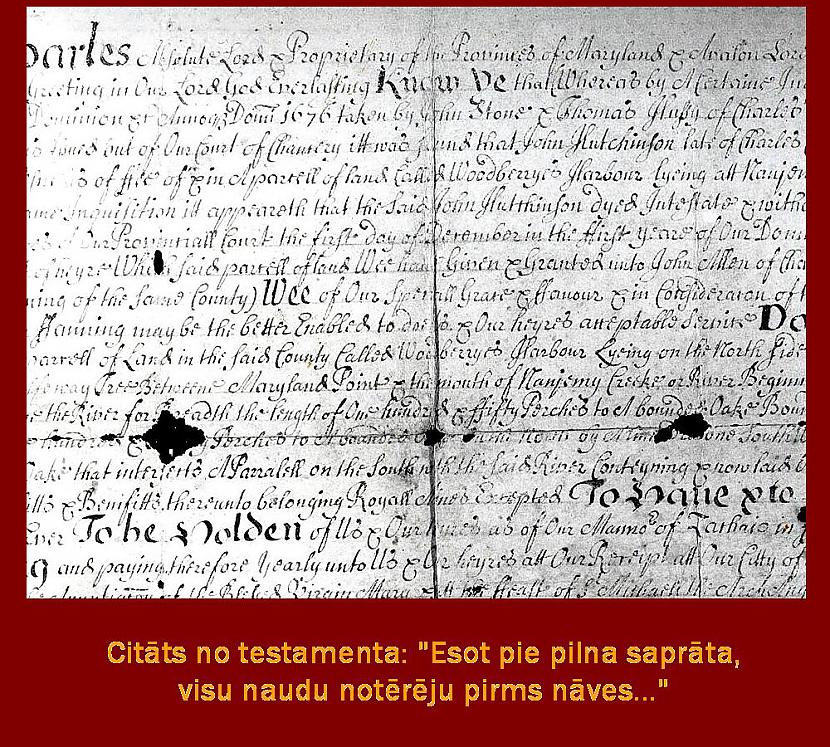 harles Absolute Lord & Proprietary of the Provinces of Maryland & Avalon Lord
Greeting in Our Lord God Everlasting Know Ye that Whereas by A Certaine In
Dominion &c Annoq Domi 1676 taken by John Stone & Thomas Hussy of Charles
issued out of Our Court of Chancery itt was found that John Hutchinson late of Charles C
of ffee of & in A parcell of land Called Woodberryes Harbour lyeing att Nanjem
ame Inquisition itt appeareth that the said John Hutchinson dyed Intestate & witho
Our Provinciall Court the first day of December in the ffirst yeare of Our Dom
of heyre Which said parcell of land Wee have Given & Granted unto John Allen of Cha
ning of the same County) Wee of Our Speciall Grace & ffavour & in Consideracon of t
Manning may be the better Enabled to doe Us & Our heyres acceptable Service Do
parcell of Land in the said County Called Woodberryes Harbour Lyeing on the North side
way Tree Betweene Maryland Point & the mouth of Nanjemy Creeke or River Beginn
the River for breadth the length of One hundred & ffifty Perches to A bounded Oake Boun
hundred Perches to A bounded Oake on the North by A line South
Oake that intersects A Parralell on the South with the said River Conteyning & now laid O
itts & Benifitts thereunto belonging Royall Mines Excepted To Have & to
Ever To be Holden of Us & Our heyres as of Our Mannor of Zachaia in
g and paying therefore Yearly unto Us & Our heyres att Our Receipt att Our Citty of
Annunciation of the Blessed Virgin Mary & att the ffeast of St Michaell the Arch Ang
Citāts no testamenta: "Esot pie pilna saprāta,
visu naudu notērēju pirms nāves..."